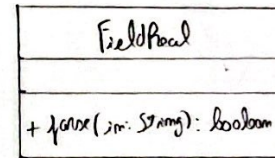 FieldReal
+ parse(in: String): boolean